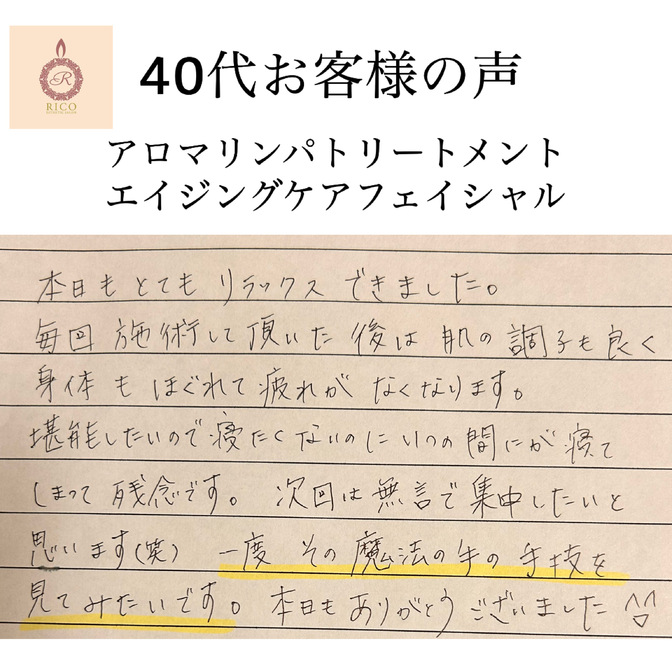 R
RICO
40代お客様の声
アロマリンパトリートメント
エイジングケアフェイシャル
本日もとてもリラックスできました。
毎回施術して頂いた後は肌の調子も良く
身体もほぐれて疲れがなくなります。
堪能したいので寝たくないのにいつの間にか寝て
しまって残念です。次回は無言で集中したいと
思います(笑) 一度その魔法の手の手技を
見てみたいです。本日もありがとうございました